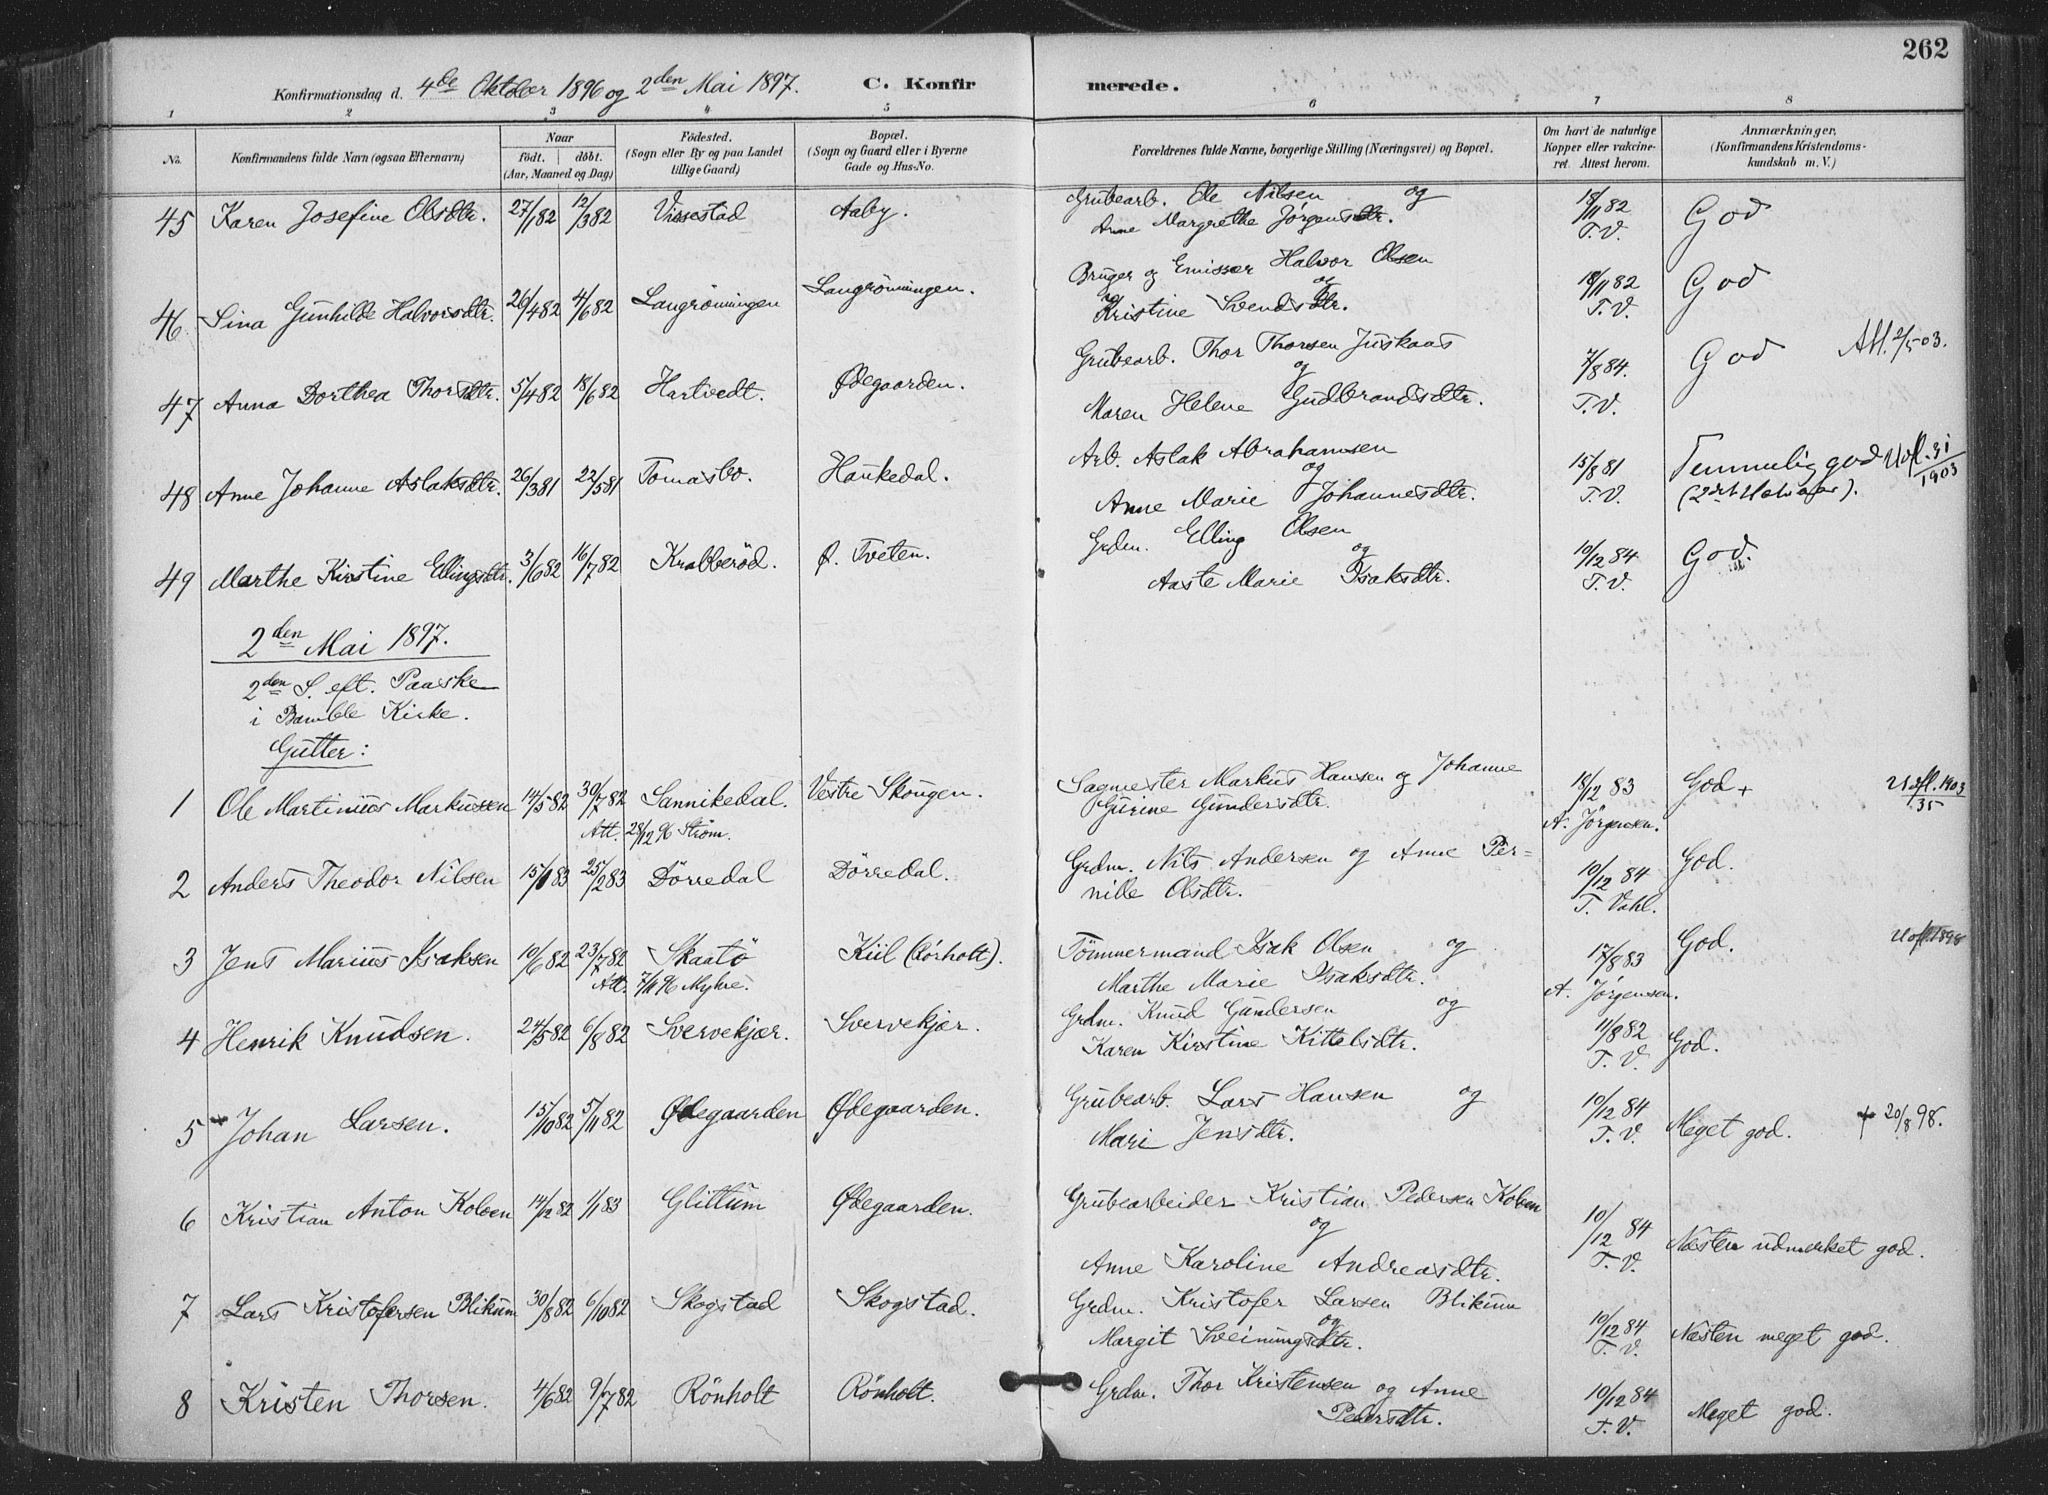 262
Konfirmationsdag d. 4de Oktober 1896 og 2den Mai 1897. C. Konfirmerede.
1 2 3 4 5 6 7 8
No. Konfirmandens fulde Navn (ogsaa Efternavn) Naar födt. döbt. (Aar, Maaned og Dag) Födested. (Sogn eller By og paa Landet tillige Gaard) Bopæl. (Sogn og Gaard eller i Byerne Gade og Hus-No. Forældrenes fulde Navne, borgerlige Stilling (Næringsvei) og Bopæl. Om havt de naturlige Kopper eller vakcineret. Attest herom. Anmærkninger, (Konfirmandens Kristendomskundskab m. V.)
45 Karen Josefine Olsdtr. 27/1 82 12/3 82 Vissestad Aaby. Grubearb. Ole Nilsen og 18/11 82 God
Anne Margrethe Jørgensdtr. T. V.
46 Sina Gunhilde Halvorsdtr. 26/4 82 4/6 82 Langrönningen Langrönningen. Bruger og Emissær Halvor Olsen 18/11 82 God
og
Kristine Svendsdtr. T. V.
47 Anna Dorthea Thorsdtr. 5/4 82 18/6 82 Hartvedt. Ødegaarden. Grubearb. Thor Thorsen Juskaas 7/8 84. God Att. 2/5 03.
og
Maren Helene Gudbrandsdtr. T. V.
48 Anne Johanne Aslaksdtr. 26/3 81 22/5 81 Tomasbo. Haukedal. Arb. Aslak Abrahamsen 15/8 81 Temmelig god Udfl. 31/1903
og
Anne Marie Johannesdtr. T. V. (2det Halvaar).
49 Marthe Kirstine Ellingsdtr. 3/6 82 16/7 82 Krabberöd. Ø. Tveten. Grdm. Elling Olsen 10/12 84 God.
og
Aaste Marie Isaksdtr. T. V.
2den Mai 1897.
2den S. eft. Paaske
i Bamble Kirke.
Gutter:
1 Ole Martinius Markussen 14/5 82 30/7 82 Sannikedal. Vestre Skougen. Sagmester Markus Hansen og Johanne 18/12 83 God + Udfl. 1903/35
Gurine Gundersdtr. A. Jörgensen.
Att. 28/12 96 Ström.
2 Anders Theodor Nilsen 15/1 83 25/2 83 Dörredal Dörredal. Grdm. Nils Andersen og Anne Per- 10/12 84 God.
nille Olsdtr. T. Vahl.
3 Jens Marius Isaksen 10/6 82 23/7 82 Skaatö Kiil (Rörholt). Tömmermand Isak Olsen og 17/8 83 God. Udfl. 1898
Att. 7/11 96 Myhre. Marthe Marie Isaksdtr. A. Jörgensen.
4 Henrik Knudsen. 24/5 82 6/8 82 Svervekjær. Svervekjær. Grdm. Knud Gundersen og 11/8 82 God.
Karen Kirstine Kittelsdtr. T. V.
5 Johan Larsen. 15/10 82 5/11 82 Ødegaarden Ødegaarden. Grubearb. Lars Hansen og 10/12 84 Meget god. † 20/8 98.
Mari Jensdtr. T. V.
6 Kristian Anton Kolven 14/12 82 1/1 83 Glittum Ødegaarden. Grubearbeider Kristian Pedersen Kolven 10/12 84 Næsten udmerket god.
og
Anne Karoline Andreasdtr. T. V.
7 Lars Kristofersen Blikum 30/8 82 6/10 82 Skogstad Skogstad. Grdm. Kristofer Larsen Blikum 10/12 84 Næsten meget god.
og
Margit Sveinungsdtr. T. V.
8 Kristen Thorsen. 4/6 82 9/7 82 Rönholt Rönholt. Grdm. Thor Kristensen og Anne 10/12 84 Meget god.
Pedersdtr. T. V.